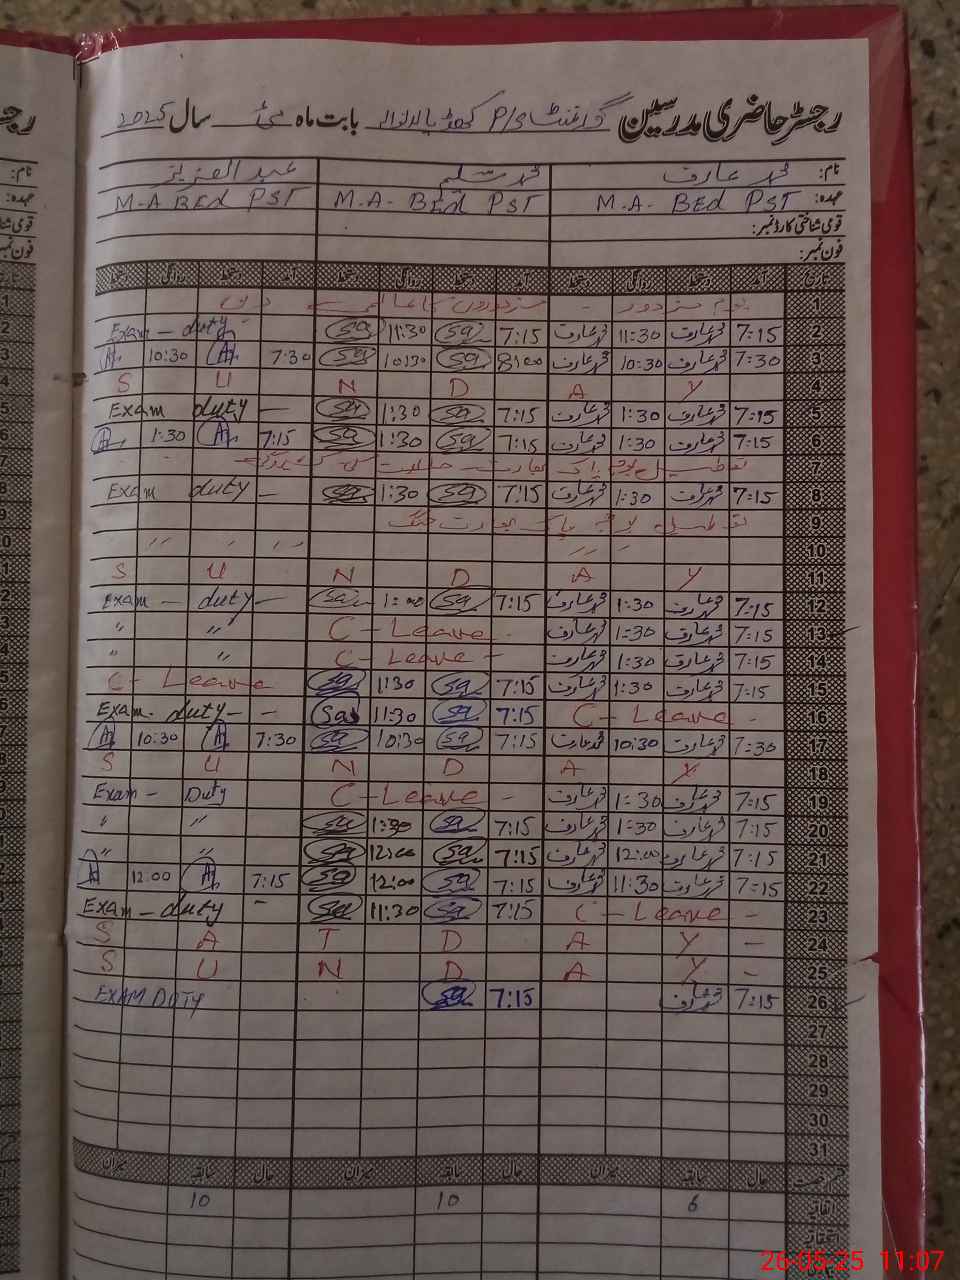 رجسٹر حاضری مدرسین گورنمنٹ P/S بابت ماہ مئی سال 2025
نام: محمد عارف محمد سلیم عبد العزیز
عہدہ: M.A. BEd PST M.A- BEd PST M-A BEd PST
قومی شناختی کارڈ نمبر:
فون نمبر:
تاریخ آمد دستخط روانگی دستخط آمد دستخط روانگی دستخط آمد دستخط روانگی دستخط
1 یوم مزدور - مزدوروں کا عالمی دن
2 7:15 محمد عارف 11:30 محمد عارف 7:15 Sa 11:30 Sa Exam - duty -
3 7:30 محمد عارف 10:30 محمد عارف 8:00 Sa 10:30 Sa 7:30 A 10:30 A
4 S U N D A Y
5 7:15 محمد عارف 1:30 محمد عارف 7:15 Sa 1:30 Sa Exam duty -
6 7:15 محمد عارف 1:30 محمد عارف 7:15 Sa 1:30 Sa 7:15 A 1:30 A
7 تعطیل بوجہ پاک بھارت حالات کی کشیدگی
8 7:15 محمد عارف 1:30 محمد عارف 7:15 Sa 1:30 Sa Exam duty -
9 تعطیل بوجہ پاک بھارت جنگ
10 〃 〃 〃 〃
11 S U N D A Y
12 7:15 محمد عارف 1:30 محمد عارف 7:15 Sa 1:00 Sa Exam - duty -
13 7:15 محمد عارف 1:30 محمد عارف C - Leave - 〃 〃
14 7:15 محمد عارف 1:30 محمد عارف C - Leave - 〃 〃
15 7:15 محمد عارف 1:30 محمد عارف 7:15 Sa 1:30 Sa C - Leave
16 C - Leave - 7:15 Sa 11:30 Sa Exam - duty - -
17 7:30 محمد عارف 10:30 محمد عارف 7:15 Sa 10:30 Sa 7:30 A 10:30 A
18 S U N D A Y
19 7:15 محمد عارف 1:30 محمد عارف C - Leave - Exam - Duty
20 7:15 محمد عارف 1:30 محمد عارف 7:15 Sa 1:30 Sa 〃 〃
21 7:15 محمد عارف 12:00 محمد عارف 7:15 Sa 12:00 Sa 〃 〃
22 7:15 محمد عارف 11:30 محمد عارف 7:15 Sa 12:00 Sa 7:15 A 12:00 A
23 C - Leave - 7:15 Sa 11:30 Sa Exam - duty -
24 S A T D A Y -
25 S U N D A Y -
26 7:15 محمد عارف 7:15 Sa EXAM DUTY
27
28
29
30
31
قسم رخصت حال سابقہ میزان حال سابقہ میزان حال سابقہ میزان
اتفاقیہ 6 10 10
26-05-25 11:07